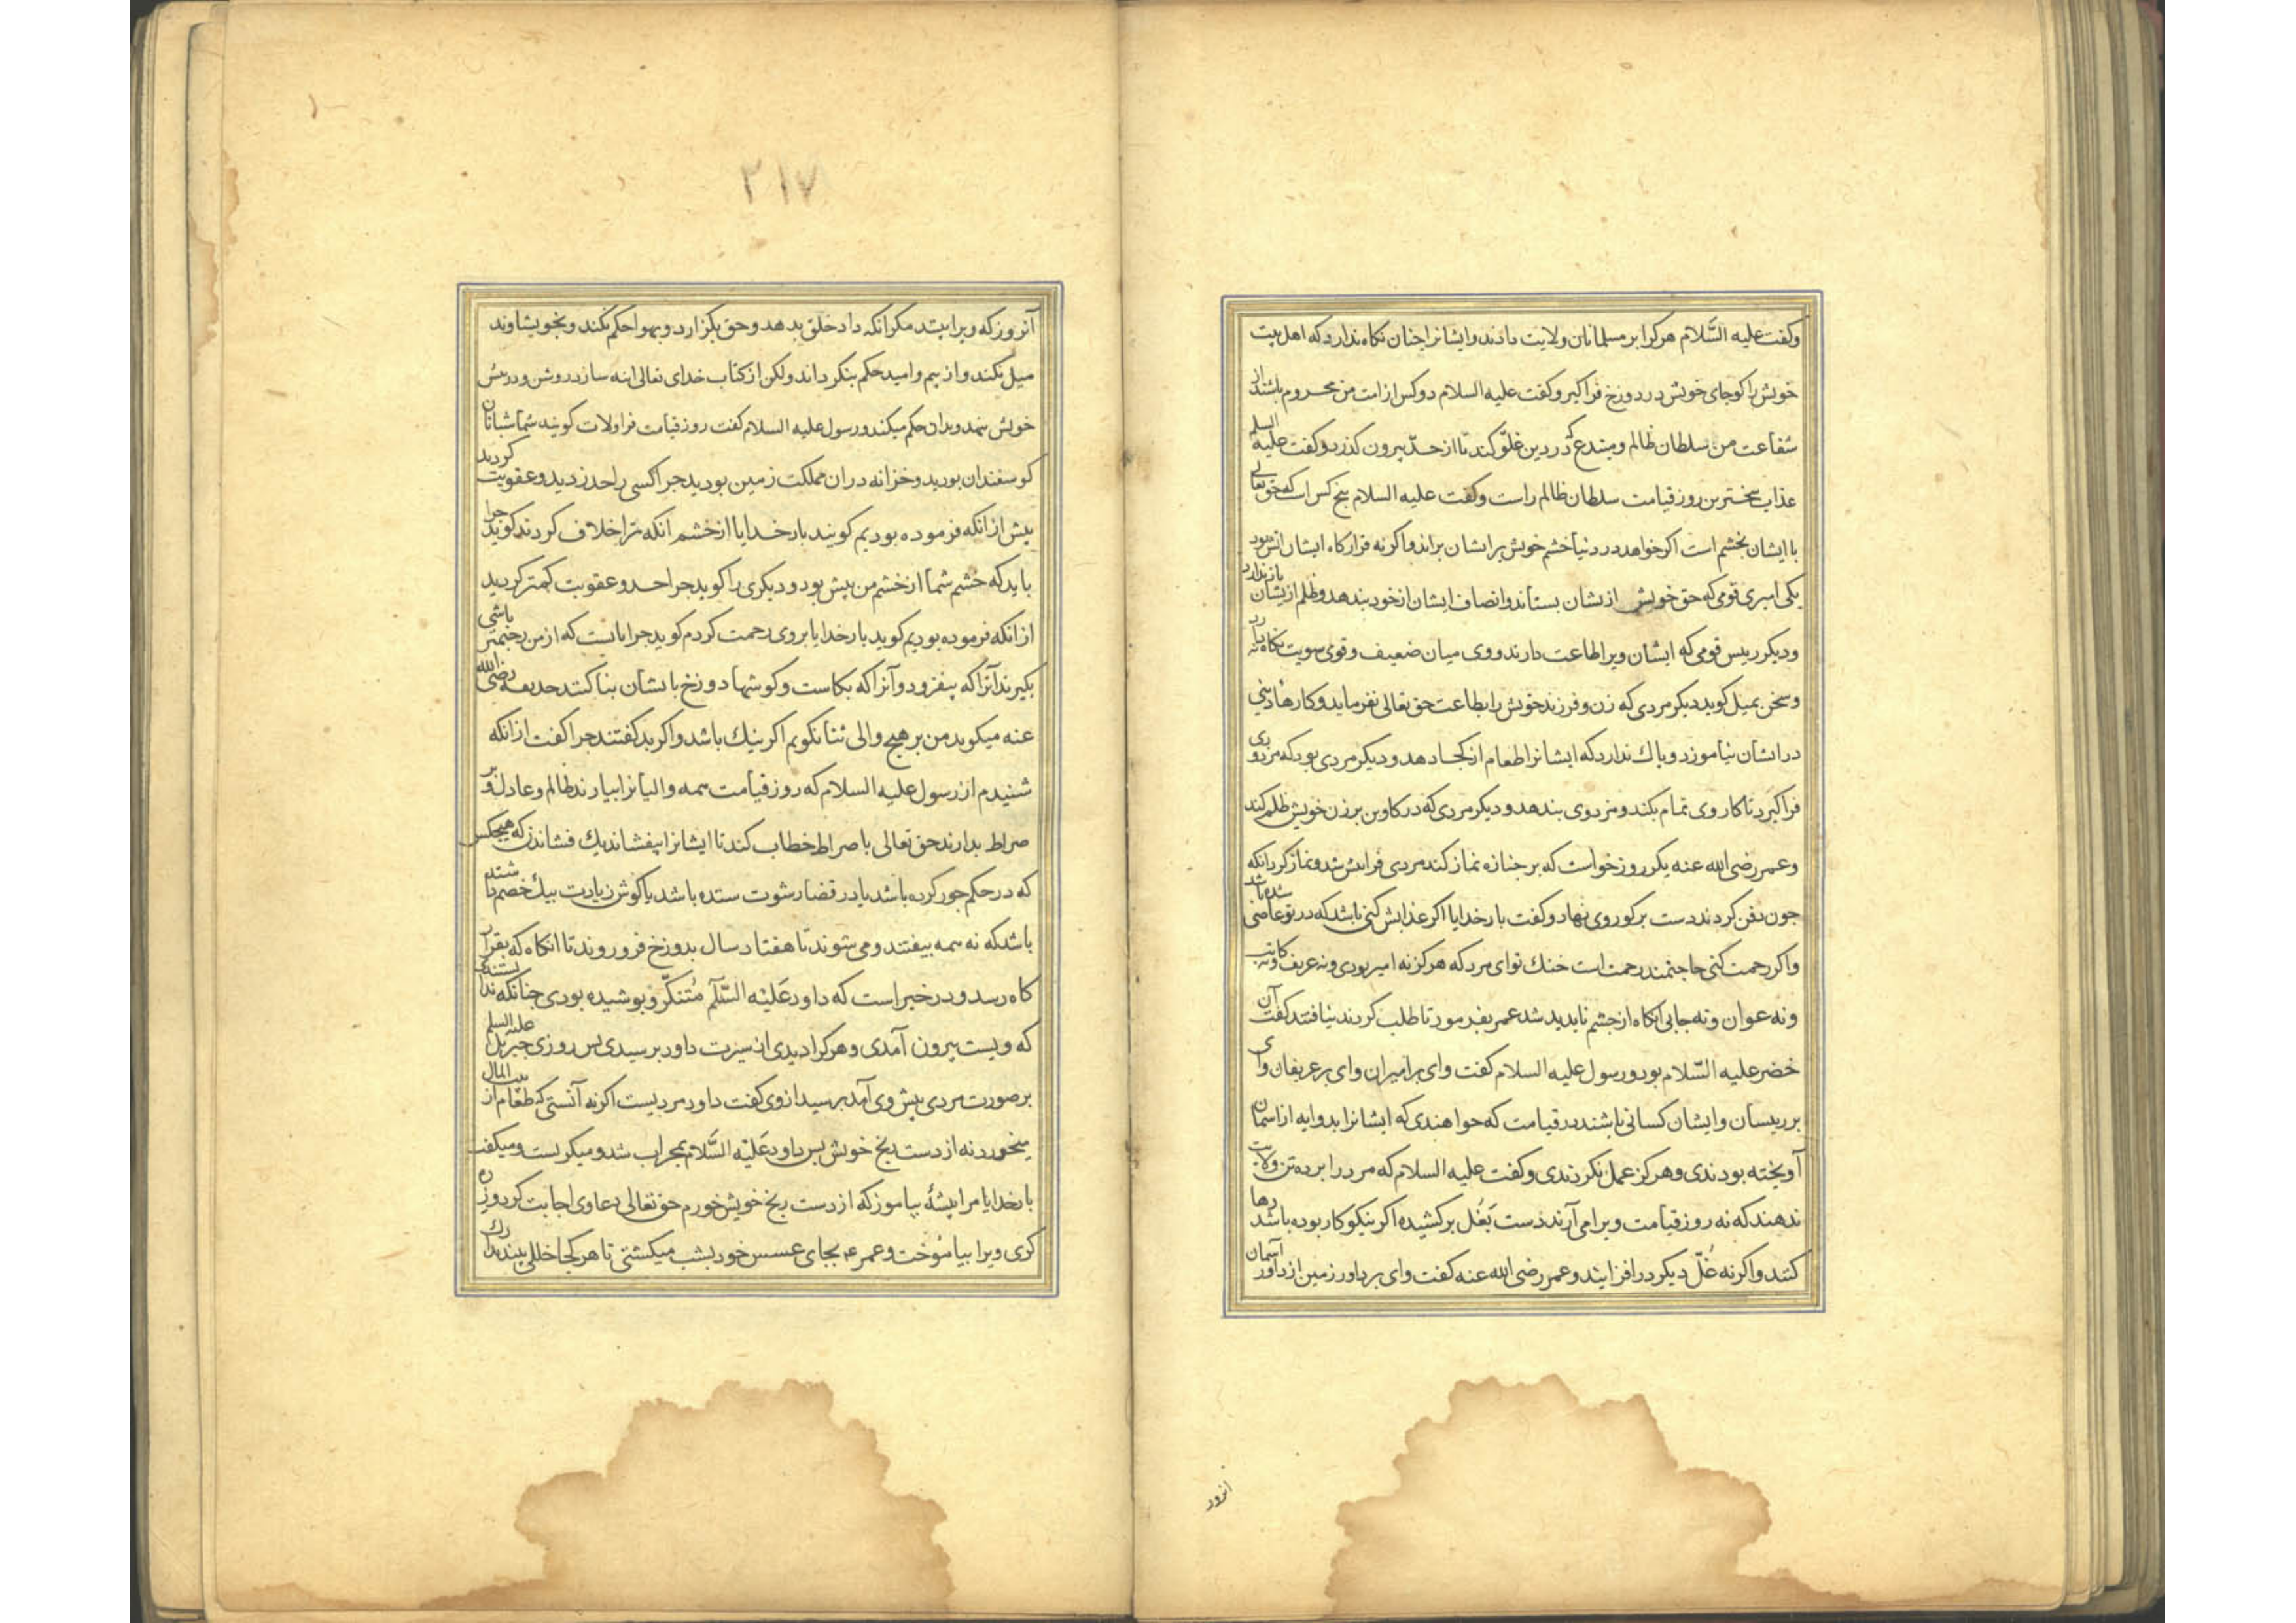 وكفت عليه السَّلام هركرا بر مسلمانان ولايت دادند وايشانرا چنان نكاه ندارد كه اهل بيت
خويش را كو جاى خويش در دوزخ فراكير وكفت عليه السلام دو كس از امت من محروم باشند از
شفاعت من سلطان ظالم ومبتدع كه در دين غلوّ كند تا از حدّ بيرون كذرد وكفت عليه السلم
عذاب سختر بن روز قيامت سلطان ظالم راست وكفت عليه السلام پنج كس است كه حق تعالى
با ايشان بخشم است اكر خواهد در دنيا خشم خويش بر ايشان براند واكر نه قراركاه ايشان آتش بود
يكى امير قومى كه حق خويش از يشان بستاند وانصاف ايشان از خود بندهد وظلم از يشان باز ندارد
وديكر رييس قومى كه ايشان ويرا طاعت دارند ووى ميان ضعيف وقوى سويت نكاه ندارد
وسخن بميل كويد ديكر مردى كه زن وفرزند خويش را بطاعت حق تعالى نفرمايد وكارهاء دينى
در ايشان نياموزد وباك ندارد كه ايشانرا طعام از كجا دهد وديكر مردى بود كه مزدورى
فراكيرد تا كار وى تمام بكند ومزد وى بندهد وديكر مردى كه در كاوين بر زن خويش ظلم كند
وعمر رضى الله عنه يكروز خواست كه بر جنازه نماز كند مردى فرا پيش شد ونماز كرد انكه
چون دفن كردند دست بر كور وى نهاد وكفت بار خدايا اكر عذابش كنى باشد كه در تو عاصى شده باشد
واكر رحمت كنى حاجتمند رحمت است خنك تو اى مرد كه هركز نه امير بودى ونه عريف ونه كاتب
ونه عوان ونه جابى آنكاه از چشم ناپديد شد عمر بفرمود تا طلب كردند نيافتند كفت آن
خضر عليه السّلام بود ورسول عليه السلام كفت واى بر اميران واى بر عريفان واى
بر رييسان وايشان كسانى باشند در قيامت كه خواهندى كه ايشانرا بدوابه از آسمان
آويخته بودندى وهركز عمل نكردندى وكفت عليه السلام كه مرد را بر ده تن ولايت
ندهند كه نه روز قيامت ويرا مى آرند دست بغُل بركشيده اكر نيكوكار بوده باشد رها
كنند واكر نه غُلّ ديكر در افزايند وعمر رضى الله عنه كفت واى بر داور زمين از داور آسمان
انروز
٢١٧
آنروز كه ويرا بيند مكر انكه داد خلق بدهد وحق بكزارد وبهوا حكم نكند وبخويشاوند
ميل نكند واز بيم واميد حكم بنكرداند ولكن از كتاب خداى تعالى اينه سازد روشن ودر پيش
خويش نهد وبدان حكم ميكند ورسول عليه السلام كفت روز قيامت فرا ولات كويند شما شبانان
كوسفندان بوديد وخزانه دران مملكت زمين بوديد چرا كسى را حد زديد وعقوبت كرديد
بيش از انكه فرموده بوديم كويند بار خدايا از خشم انكه ترا خلاف كردند كويد چرا
بايد كه خشم شما از خشم من بيش بود وديكرى را كويد چرا حد وعقوبت كمتر كرديد
از انكه فرموده بوديم كويد بار خدايا بر وى رحمت كردم كويد چرا بايست كه از من رحيمتر باشى
بكيرند آنرا كه بيفزود وآنرا كه بكاست وكوشها دوزخ بايشان بنا كنند حذيفه رضى الله
عنه ميكويد من بر هيچ والى ثنا نكويم اكر نيك باشد واكر بد كفتند چرا كفت از انكه
شنيدم از رسول عليه السلام كه روز قيامت همه واليانرا بيارند ظالم وعادل وبر
صراط بدارند حق تعالى با صراط خطاب كند تا ايشانرا بيفشاند يك فشاندن كه هيچكس
كه در حكم جور كرده باشد يا در قضا رشوت ستده باشد يا كوش زيادت بيك خصم داشته
باشد كه نه همه بيفتند ومى شوند تا هفتاد سال بدوزخ فرو روند تا آنكاه كه بقرار
كاه رسد ودر خبر است كه داود عَليْه السَّلَم مُتنكّر وپوشيده بودى چنانكه ندانستندى
كه ويست بيرون آمدى وهركرا ديدى از سيرت داود پرسيدى پس روزى جبريل عليه السلم
بر صورت مردى پيش وى آمد پرسيد از وى كفت داود مرديست اكر نه آنستى كه طعام از بيت المال
ميخورد نه از دست رنج خويش پس داود عَليْه السَّلام بمحراب شد وميكريست وميكفت
بار خدايا مرا پيشهٔ بياموز كه از دست رنج خويش خورم حق تعالى دعاء وى اجابت كرد وزره
كرى ويرا بياموخت وعمر رع بجاى عسس خود بشب ميكشتى تا هركجا خللى بيند تدارك